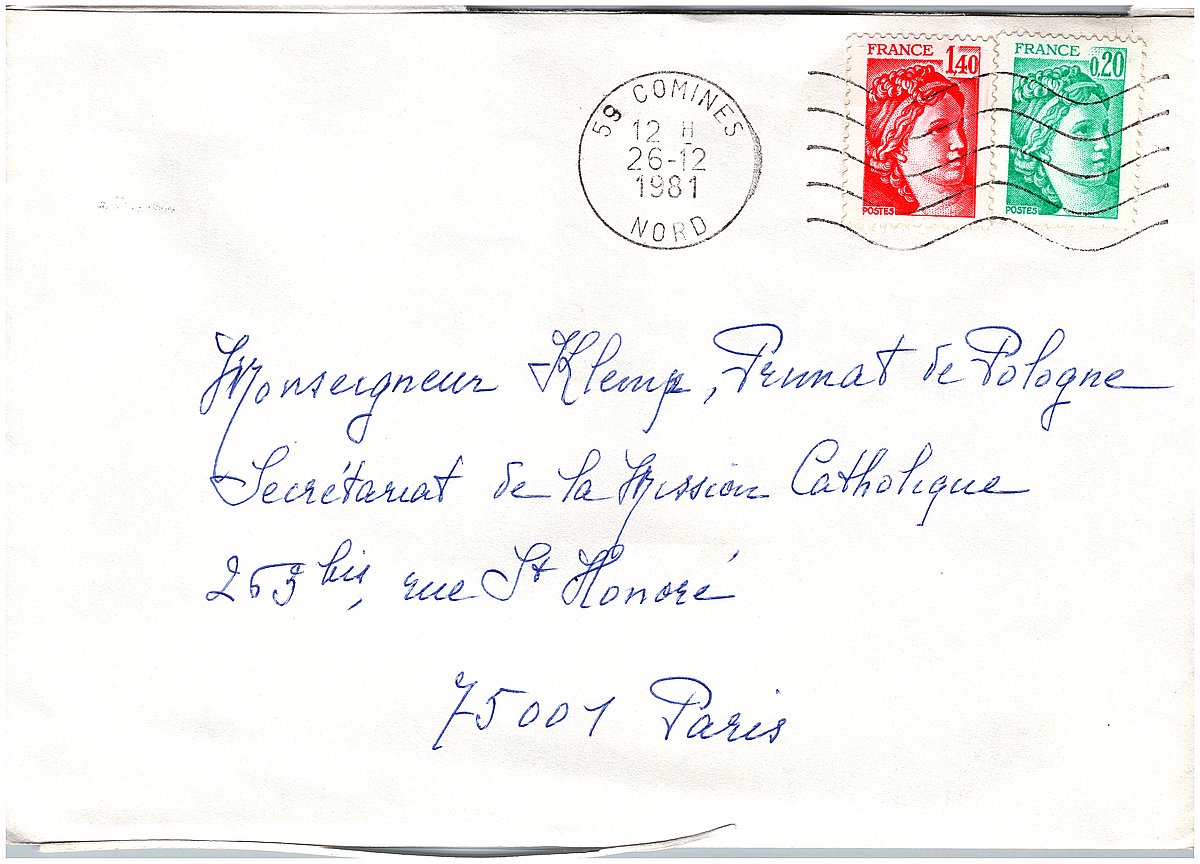 FRANCE 1,40
POSTES
FRANCE 0,20
POSTES
59 COMINES
12 H
26-12
1981
NORD
Monseigneur Klemp, Primat de Pologne
Secrétariat de la Mission Catholique
263 bis, rue St Honoré
75001 Paris